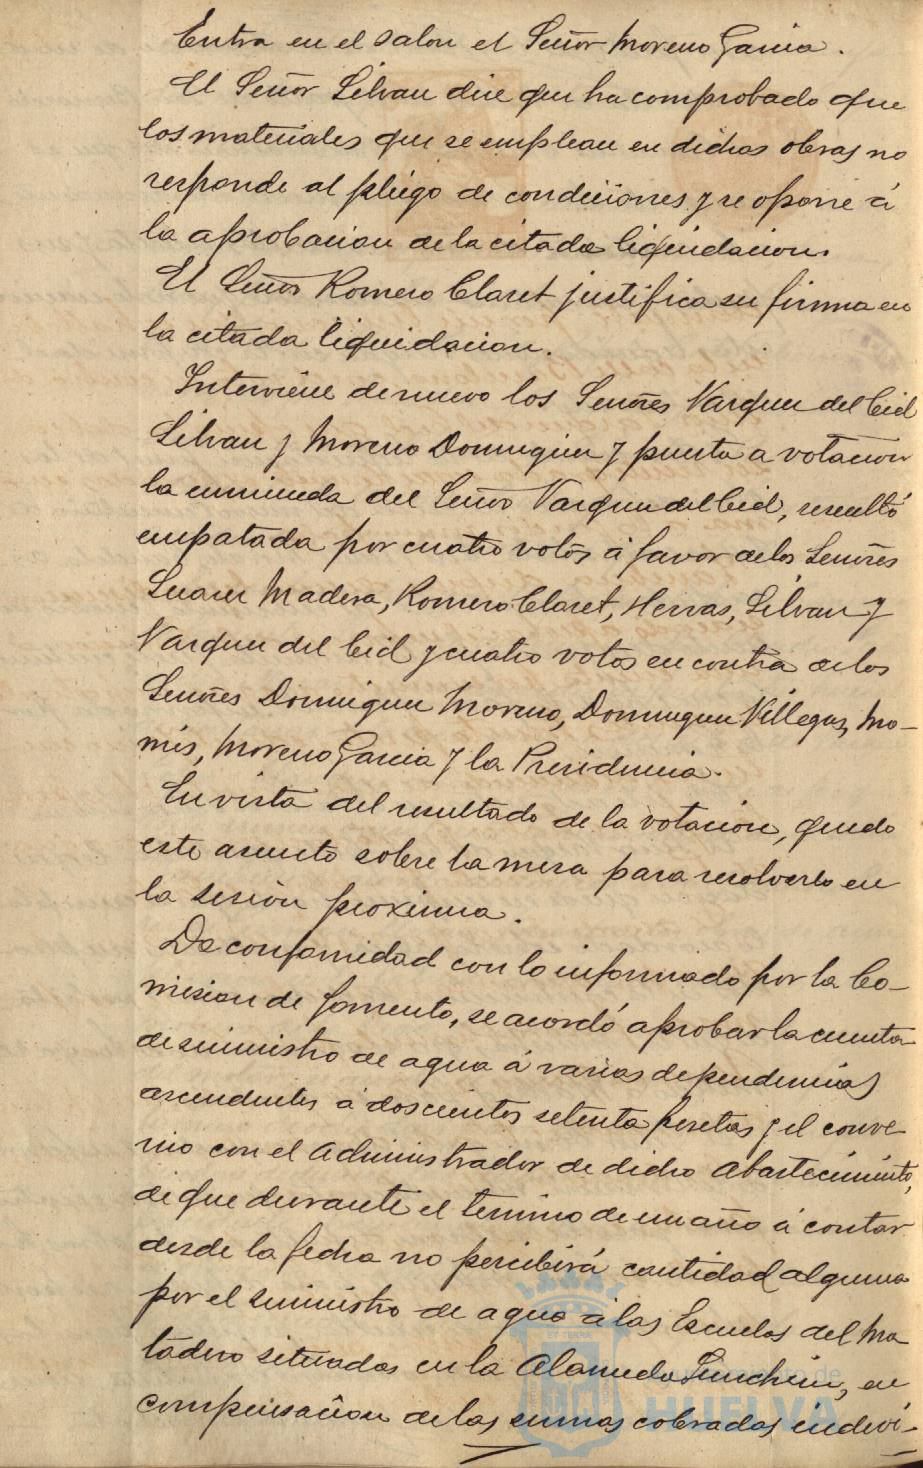 Entra en el salon el Señor Moreno Garcia.
El Señor Silvan dice que ha comprobado que
los materiales que se emplean en dichas obras no
responde al pliego de condiciones y se opone á
la aprobacion de la citada liquidacion.
El Señor Romero Claret justifica su firma en
la citada liquidacion.
Interviene de nuevo los Señores Vazquez del Cid
Silvan y Moreno Dominguez y puesta a votacion
la enmienda del Señor Vazquez del Cid, resultó
empatada por cuatro votos á favor de los Señores
Suarez Madera, Romero Claret, Hervas, Silvan y
Vazquez del Cid y cuatro votos en contra de los
Señores Dominguez Moreno, Dominguez Villegas, Mo-
nis, Moreno Garcia y la Presidencia.
En vista del resultado de la votacion, quedo
este asunto sobre la mesa para resolverlo en
la sesión proxima.
De conformidad con lo informado por la Co-
mision de Fomento, se acordó aprobar la cuenta
de suministro de agua á varias dependencias
ascendentes á doscientos setenta pesetas y el conve
nio con el Administrador de dicho Abastecimiento,
de que durante el termino de un año á contar
desde la fecha no percibirá cantidad alguna
por el suministro de agua á las Escuelas del Ma
tadero situadas en la Alameda Sundheim, en
compensacion de las sumas cobradas indevi-
Ayuntamiento de
HUELVA